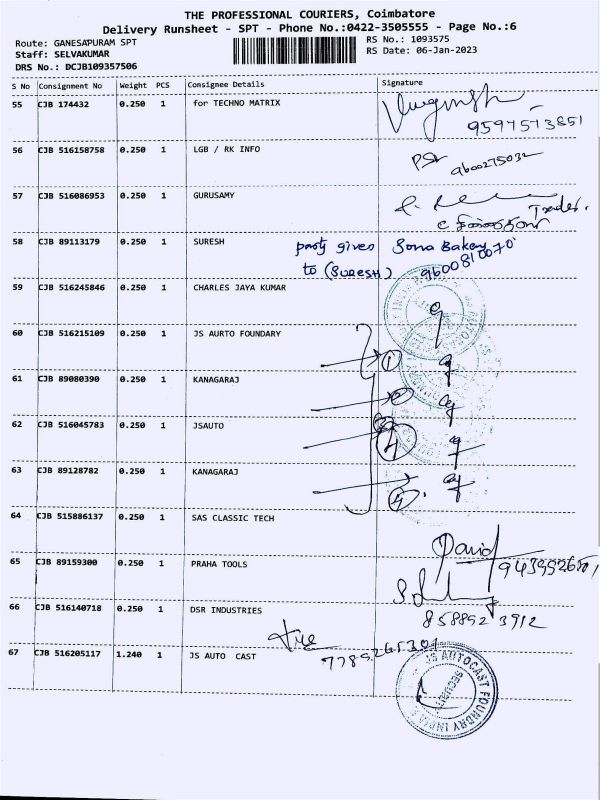 THE PROFESSIONAL COURIERS, Coimbatore
Delivery Runsheet - SPT - Phone No.:0422-3505555 - Page No.:6
Route: GANESAPURAM SPT
RS No.: 1093575
Staff: SELVAKUMAR
RS Date: 06-Jan-2023
DRS No.: DCJB109357506
S No Consignment No Weight PCS Consignee Details Signature
55 CJB 174432 0.250 1 for TECHNO MATRIX
9597573851
56 CJB 516158758 0.250 1 LGB / RK INFO
9600275032
57 CJB 516086953 0.250 1 GURUSAMY
Trades.
58 CJB 89113179 0.250 1 SURESH party gives Sona Bakery
to (SURESH) 9600810070
59 CJB 516245846 0.250 1 CHARLES JAYA KUMAR
60 CJB 516215109 0.250 1 JS AURTO FOUNDARY
1
61 CJB 89080390 0.250 1 KANAGARAJ
62 CJB 516045783 0.250 1 JSAUTO
63 CJB 89128782 0.250 1 KANAGARAJ
4
64 CJB 515886137 0.250 1 SAS CLASSIC TECH
David
65 CJB 89159300 0.250 1 PRAHA TOOLS
66 CJB 516140718 0.250 1 DSR INDUSTRIES
8588923912
67 CJB 516205117 1.240 1 JS AUTO CAST
JS AUTOCAST FOUNDRY INDIA
SECURITY